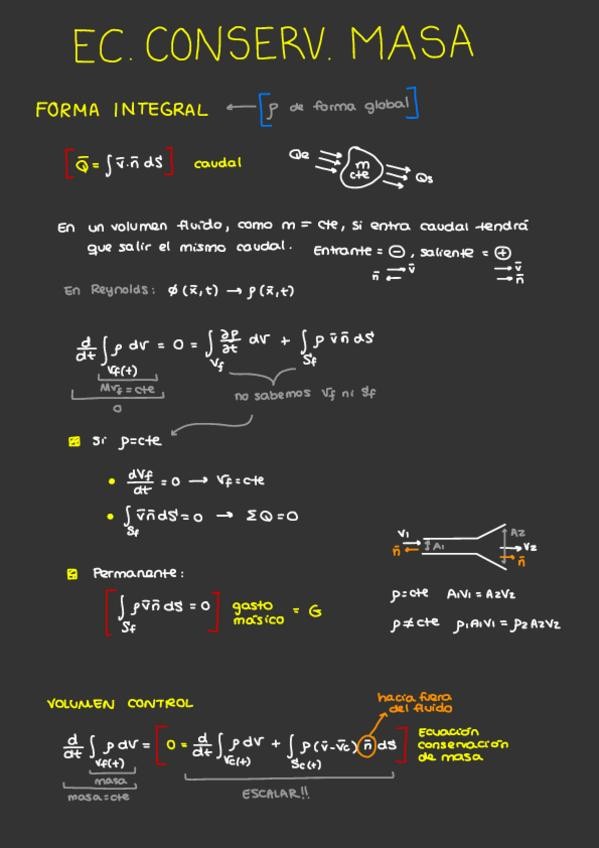 EC. CONSERV. MASA
FORMA INTEGRAL ← [ρ de forma global]
[Q̄ = ∫ v̄·n̄ dS] caudal
Qe m cte Qs
En un volumen fluido, como m = cte, si entra caudal tendrá
que salir el mismo caudal. Entrante = ⊖, saliente = ⊕
n̄ v̄ v̄ n̄
En Reynolds: φ(x̄,t) → ρ(x̄,t)
d/dt ∫Vf(t) ρ dV = 0 = ∫Vf ∂ρ/∂t dV + ∫Sf ρ v̄ n̄ dS
MVf = cte
0
no sabemos Vf ni Sf
Si ρ=cte
• dVf/dt = 0 → Vf = cte
• ∫Sf v̄ n̄ dS = 0 → ΣQ = 0
V1 n̄ A1 A2 V2 n̄
Permanante:
[∫Sf ρ v̄ n̄ dS = 0] gasto másico = G
ρ=cte A1V1 = A2V2
ρ≠cte ρ1A1V1 = ρ2A2V2
VOLUMEN CONTROL
hacia fuera
del fluido
d/dt ∫Vf(t) ρ dV = [0 = d/dt ∫Vc(t) ρ dV + ∫Sc(t) ρ(v̄-v̄c) n̄ dS] Ecuación
conservación
de masa
masa
masa=cte
ESCALAR!!